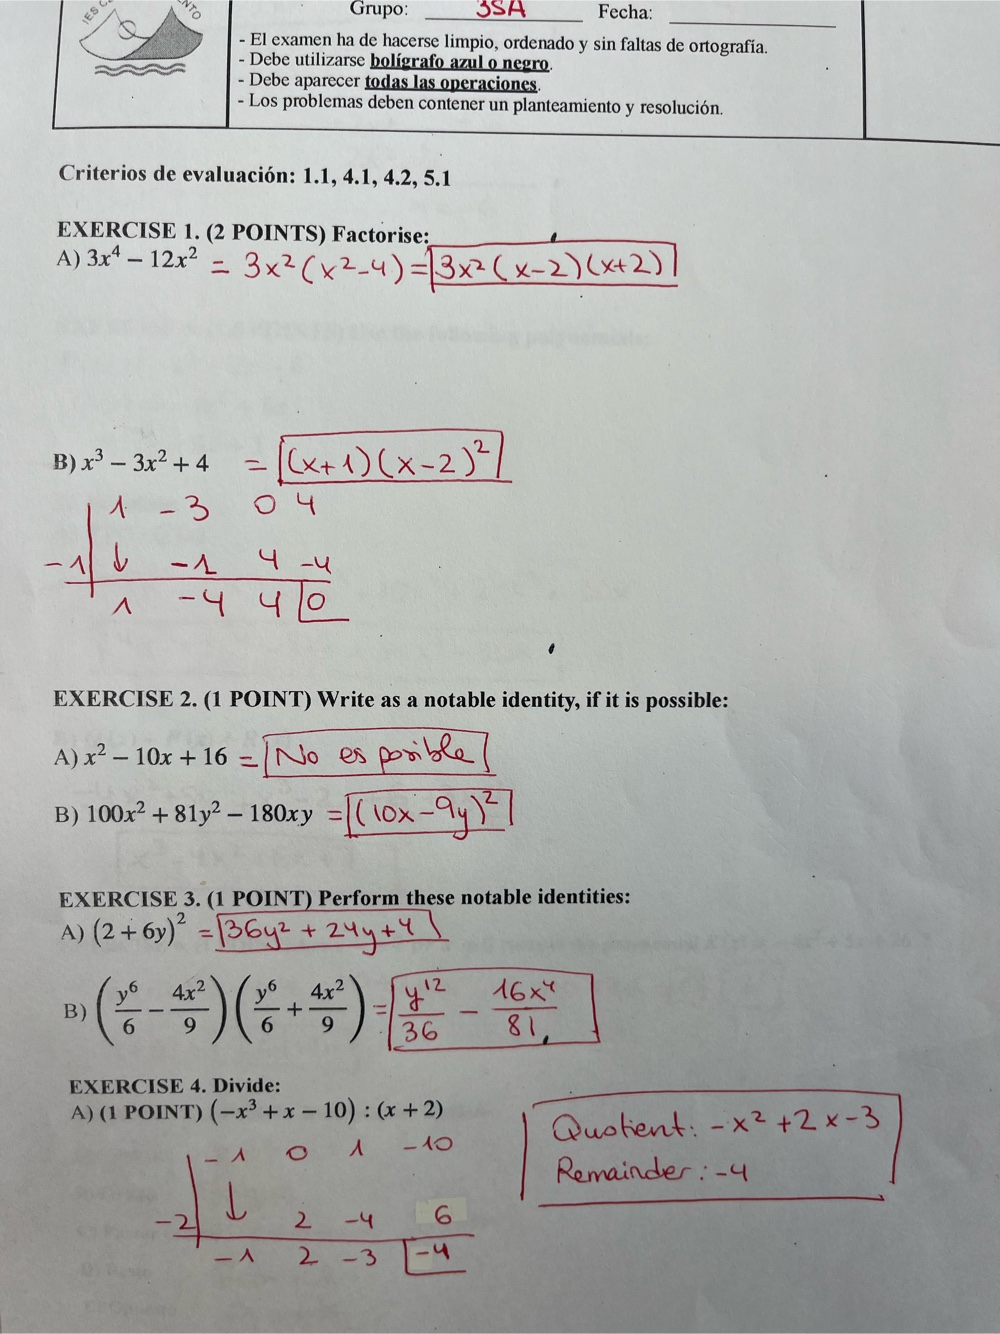 Grupo: 3SA Fecha:
- El examen ha de hacerse limpio, ordenado y sin faltas de ortografía.
- Debe utilizarse bolígrafo azul o negro.
- Debe aparecer todas las operaciones.
- Los problemas deben contener un planteamiento y resolución.
Criterios de evaluación: 1.1, 4.1, 4.2, 5.1
EXERCISE 1. (2 POINTS) Factorise:
A) 3x⁴ – 12x² = 3x²(x²-4) = 3x²(x-2)(x+2)
B) x³ – 3x² + 4 = (x+1)(x-2)²
1 -3 0 4
-1 ↓ -1 4 -4
1 -4 4 0
EXERCISE 2. (1 POINT) Write as a notable identity, if it is possible:
A) x² – 10x + 16 = No es posible
B) 100x² + 81y² – 180xy = (10x-9y)²
EXERCISE 3. (1 POINT) Perform these notable identities:
A) (2 + 6y)² = 36y² + 24y + 4
B) (y⁶/6 − 4x²/9)(y⁶/6 + 4x²/9) = y¹²/36 - 16x⁴/81
EXERCISE 4. Divide:
A) (1 POINT) (−x³ + x − 10) : (x + 2)
-1 0 1 -10
-2 ↓ 2 -4 6
-1 2 -3 -4
Quotient: -x² + 2x - 3
Remainder: -4